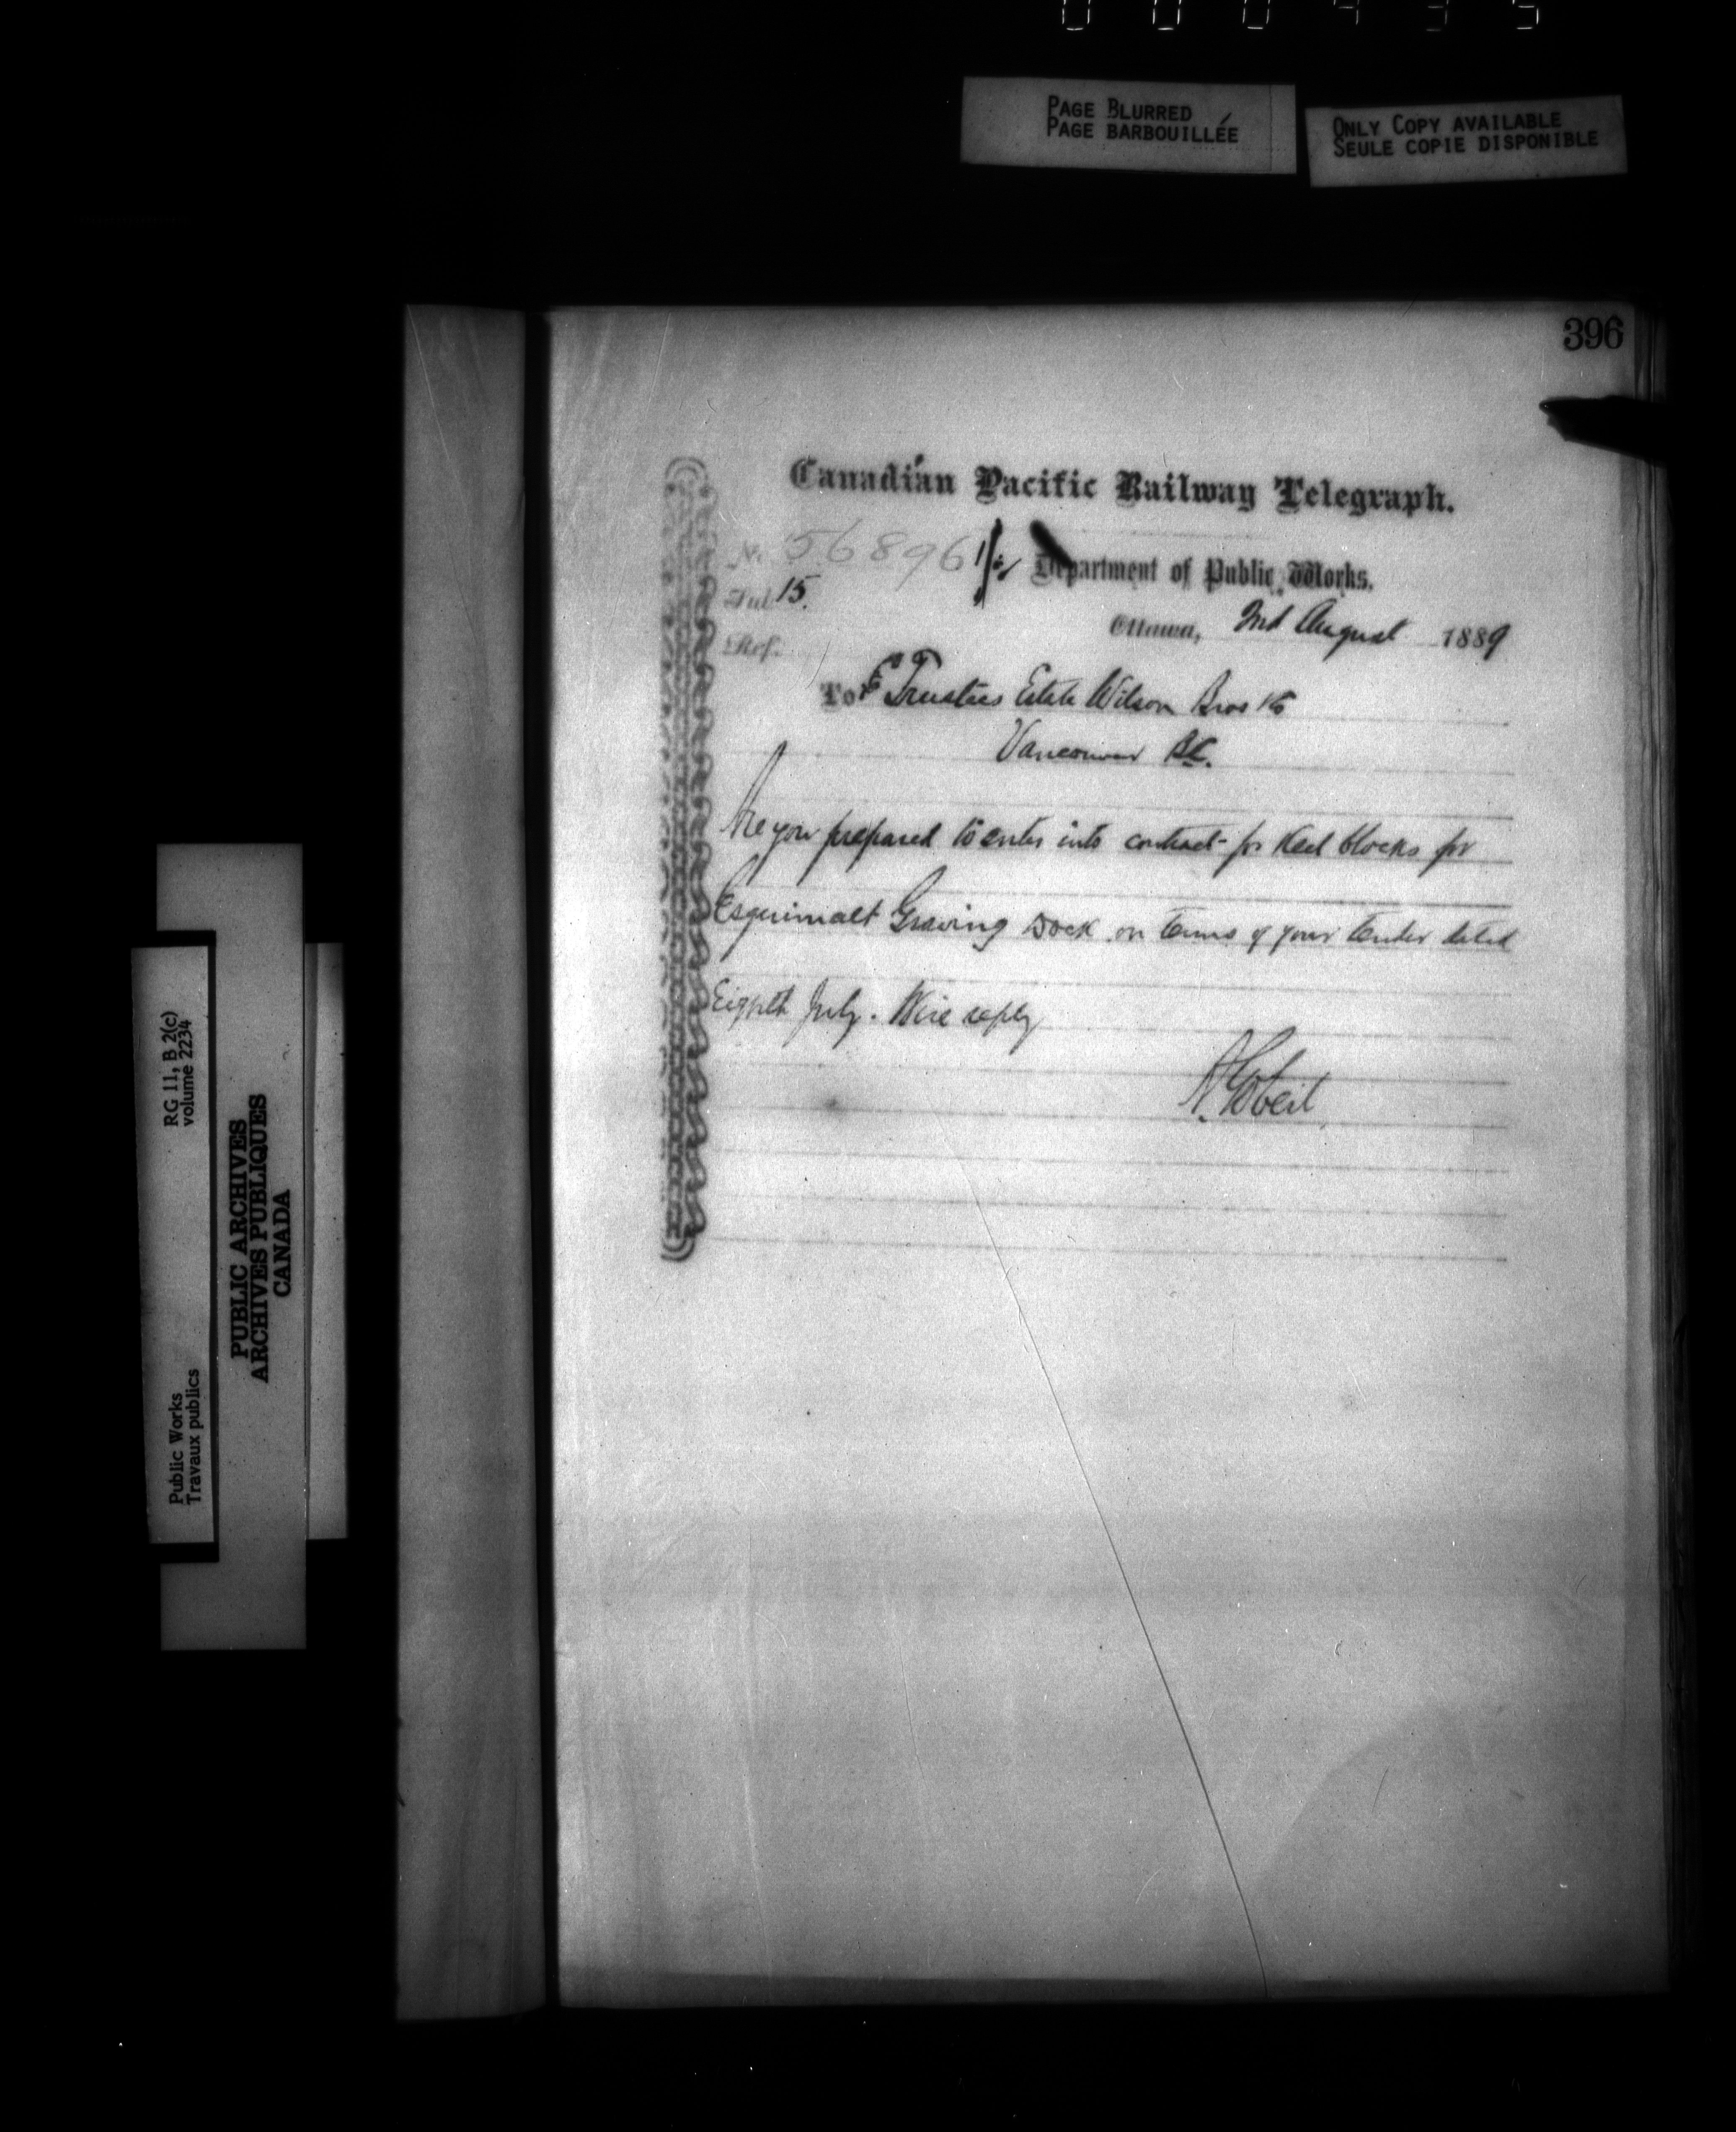 PAGE BLURRED
PAGE BARBOUILLÉE
ONLY COPY AVAILABLE
SEULE COPIE DISPONIBLE
396
Canadian Pacific Railway Telegraph.
No. 56896 1/2
Department of Public Works.
Sub. 15.
Ottawa, 2nd August 1889
Ref.
To Trustees Estate Wilson Bros
Vancouver B.C.
Are you prepared to enter into contract for Keel blocks for
Esquimalt Graving Dock on terms of your tender dated
Eighth July. Wire reply
A. Gobeil
RG 11, B 2(c)
volume 2234
Public Works
Travaux publics
PUBLIC ARCHIVES
ARCHIVES PUBLIQUES
CANADA